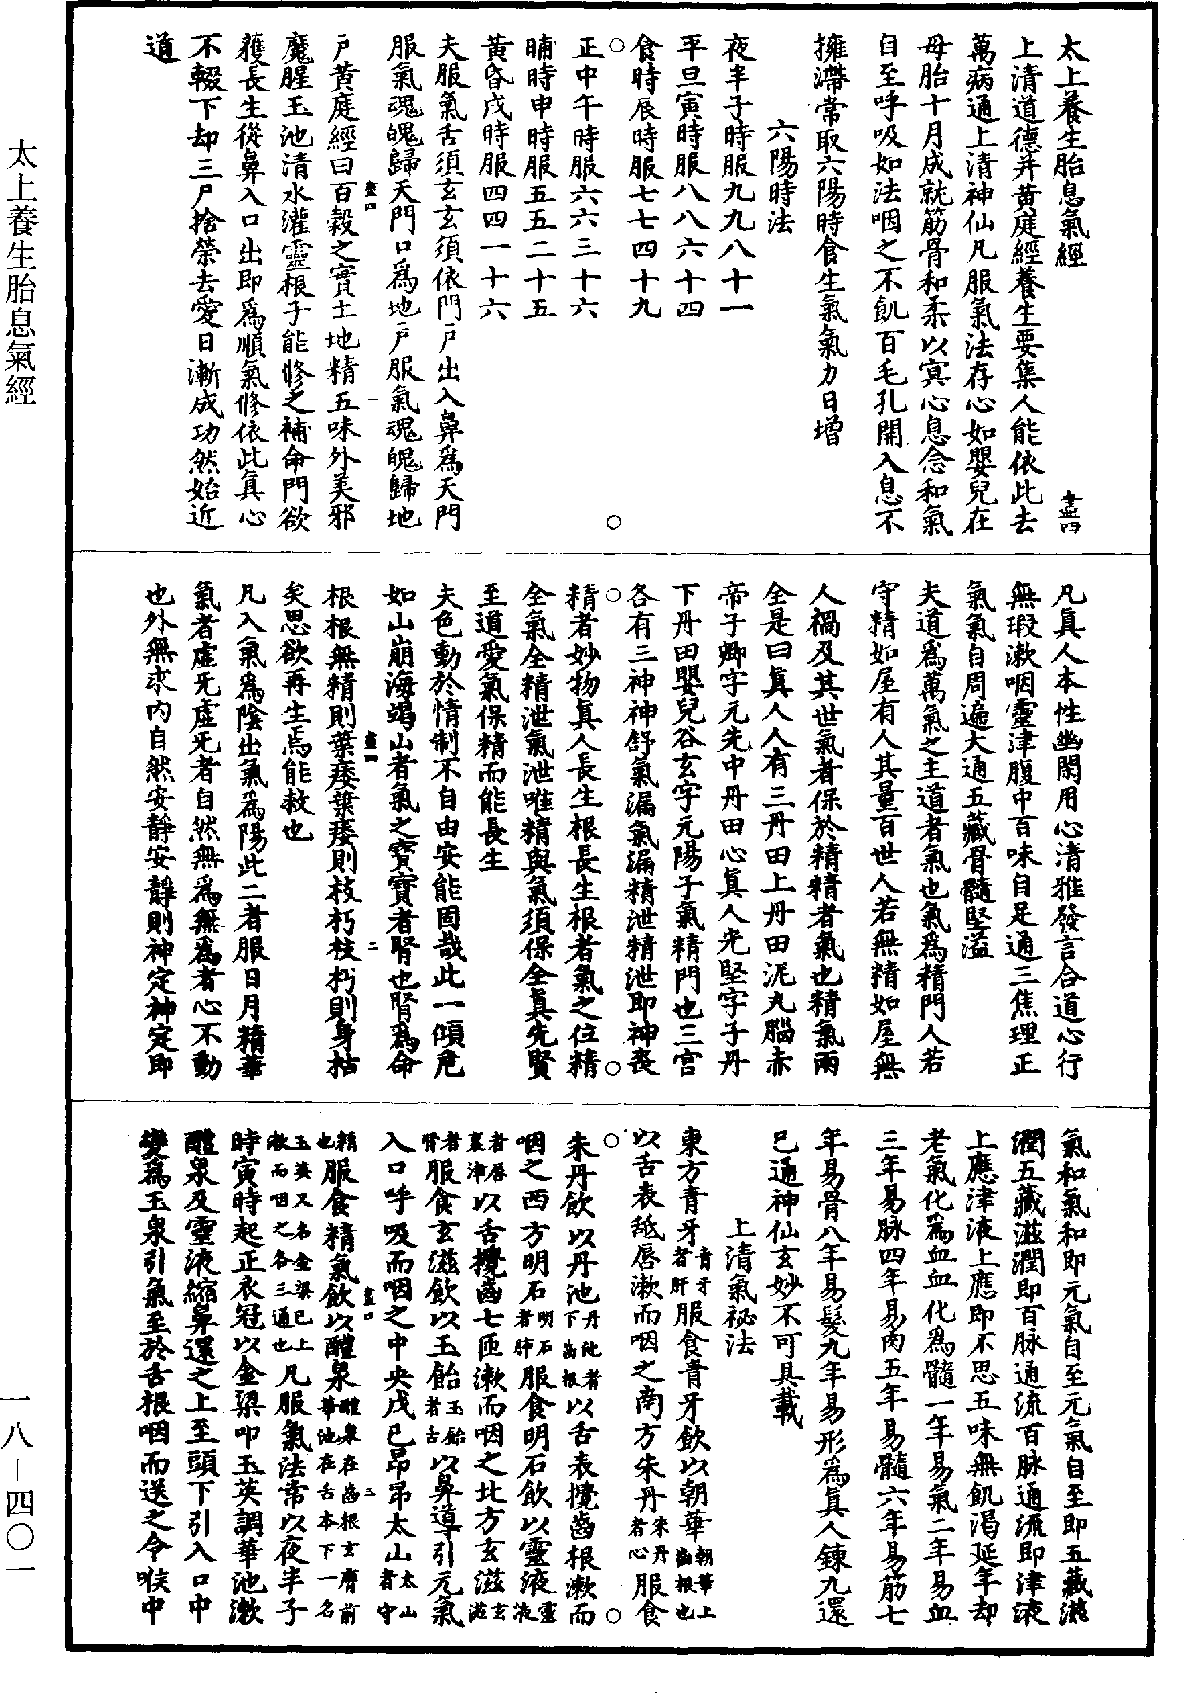 太上養生胎息氣經
盡四
上清道德并黃庭經養生要集人能依此去
萬病通上清神仙凡服氣法存心如嬰兒在
母胎十月成就筋骨和柔以冥心息念和氣
自至呼吸如法咽之不飢百毛孔開入息不
擁滯常取六陽時食生氣氣力日增
六陽時法
夜半子時服九九八十一
平旦寅時服八八六十四
食時辰時服七七四十九
正中午時服六六三十六
晡時申時服五五二十五
黃昏戌時服四四一十六
夫服氣舌須玄玄須依門戶出入鼻爲天門
服氣魂魄歸天門口爲地戶服氣魂魄歸地
盡四 一
戶黃庭經曰百穀之實土地精五味外美邪
魔腥玉池清水灌靈根子能修之補命門欲
穫長生從鼻入口出即爲順氣修依此真心
不輟下却三尸捨榮去愛日漸成功然始近
道
凡真人本性幽閑用心清雅發言合道心行
無瑕漱咽靈津腹中百味自足通三焦理正
氣氣自周遍大通五藏骨髓堅溢
夫道爲萬氣之主道者氣也氣爲精門人若
守精如屋有人其量百世人若無精如屋無
人禍及其世氣者保於精精者氣也精氣兩
全是曰真人人有三丹田上丹田泥丸腦赤
帝子卿字元先中丹田心真人光堅字子丹
下丹田嬰兒谷玄字元陽子氣精門也三宮
各有三神神舒氣漏氣漏精泄精泄即神喪
精者妙物真人長生根長生根者氣之位精
全氣全精泄氣泄唯精與氣須保全真先賢
至道愛氣保精而能長生
夫色動於情制不自由安能固哉此一傾危
如山崩海竭山者氣之寶寶者腎也腎爲命
盡四 二
根根無精則葉痿葉痿則枝朽枝朽則身枯
矣思欲再生焉能救也
凡入氣爲陰出氣爲陽此二者服日月精華
氣者虛无虛无者自然無爲無爲者心不動
也外無求內自然安靜安靜則神定神定即
氣和氣和即元氣自至元氣自至即五藏滋
潤五藏滋潤即百脉通流百脉通流即津液
上應津液上應即不思五味無飢渴延年却
老氣化爲血血化爲髓一年易氣二年易血
三年易脉四年易肉五年易髓六年易筋七
年易骨八年易髮九年易形爲真人鍊九還
已通神仙玄妙不可具載
上清氣祕法
東方青牙青牙者肝服食青牙飲以朝華朝華上齒根也
以舌表舐唇漱而咽之南方朱丹朱丹者心服食
朱丹飲以丹池丹池者下齒根以舌表攪齒根漱而
咽之西方明石明石者肺服食明石飲以靈液靈液
者唇裏津以舌攪齒七匝漱而咽之北方玄滋玄滋
者腎服食玄滋飲以玉飴玉飴者舌以鼻導引元氣
入口呼吸而咽之中央戊己昂昂太山太山者守
盡四 三
精也服食精氣飲以醴泉醴泉在齒根玄膺前華池在舌本下一名
玉英又名金梁已上漱而咽之各三通也凡服氣法常以夜半子
時寅時起正衣冠以金梁叩玉英調華池漱
醴泉及靈液縮鼻還之上至頭下引入口中
變爲玉泉引氣至於舌根咽而送之令喉中
太上養生胎息氣經
一八－四〇一